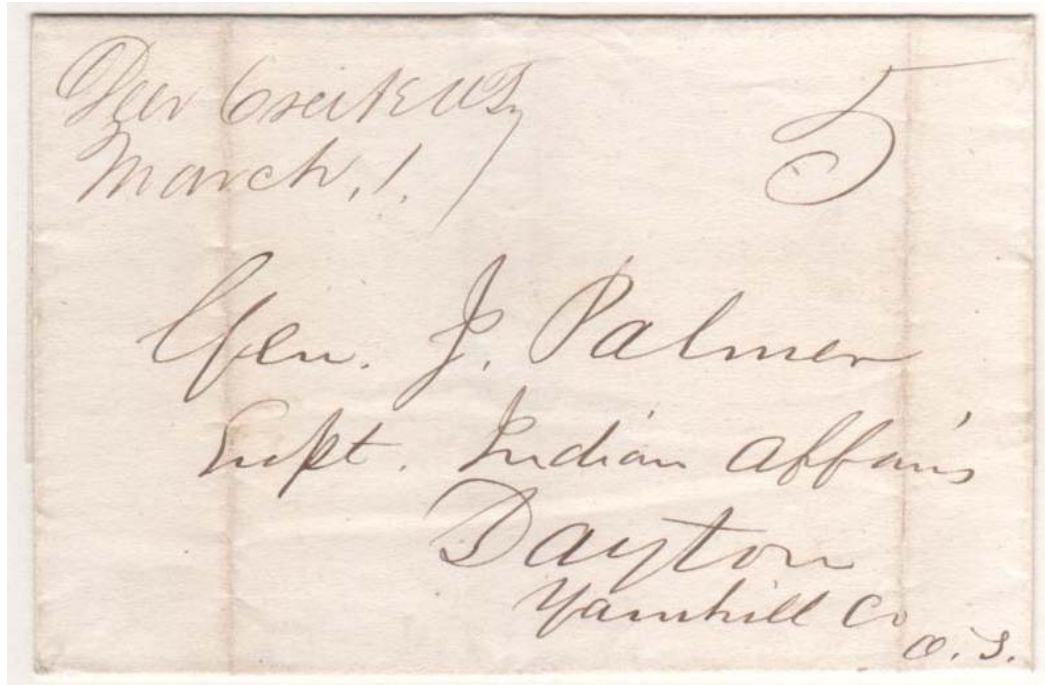 Deer Creek O.T.
March, 1.
5
Gen. J. Palmer
Supt. Indian Affairs
Dayton
Yamhill Co
O. T.